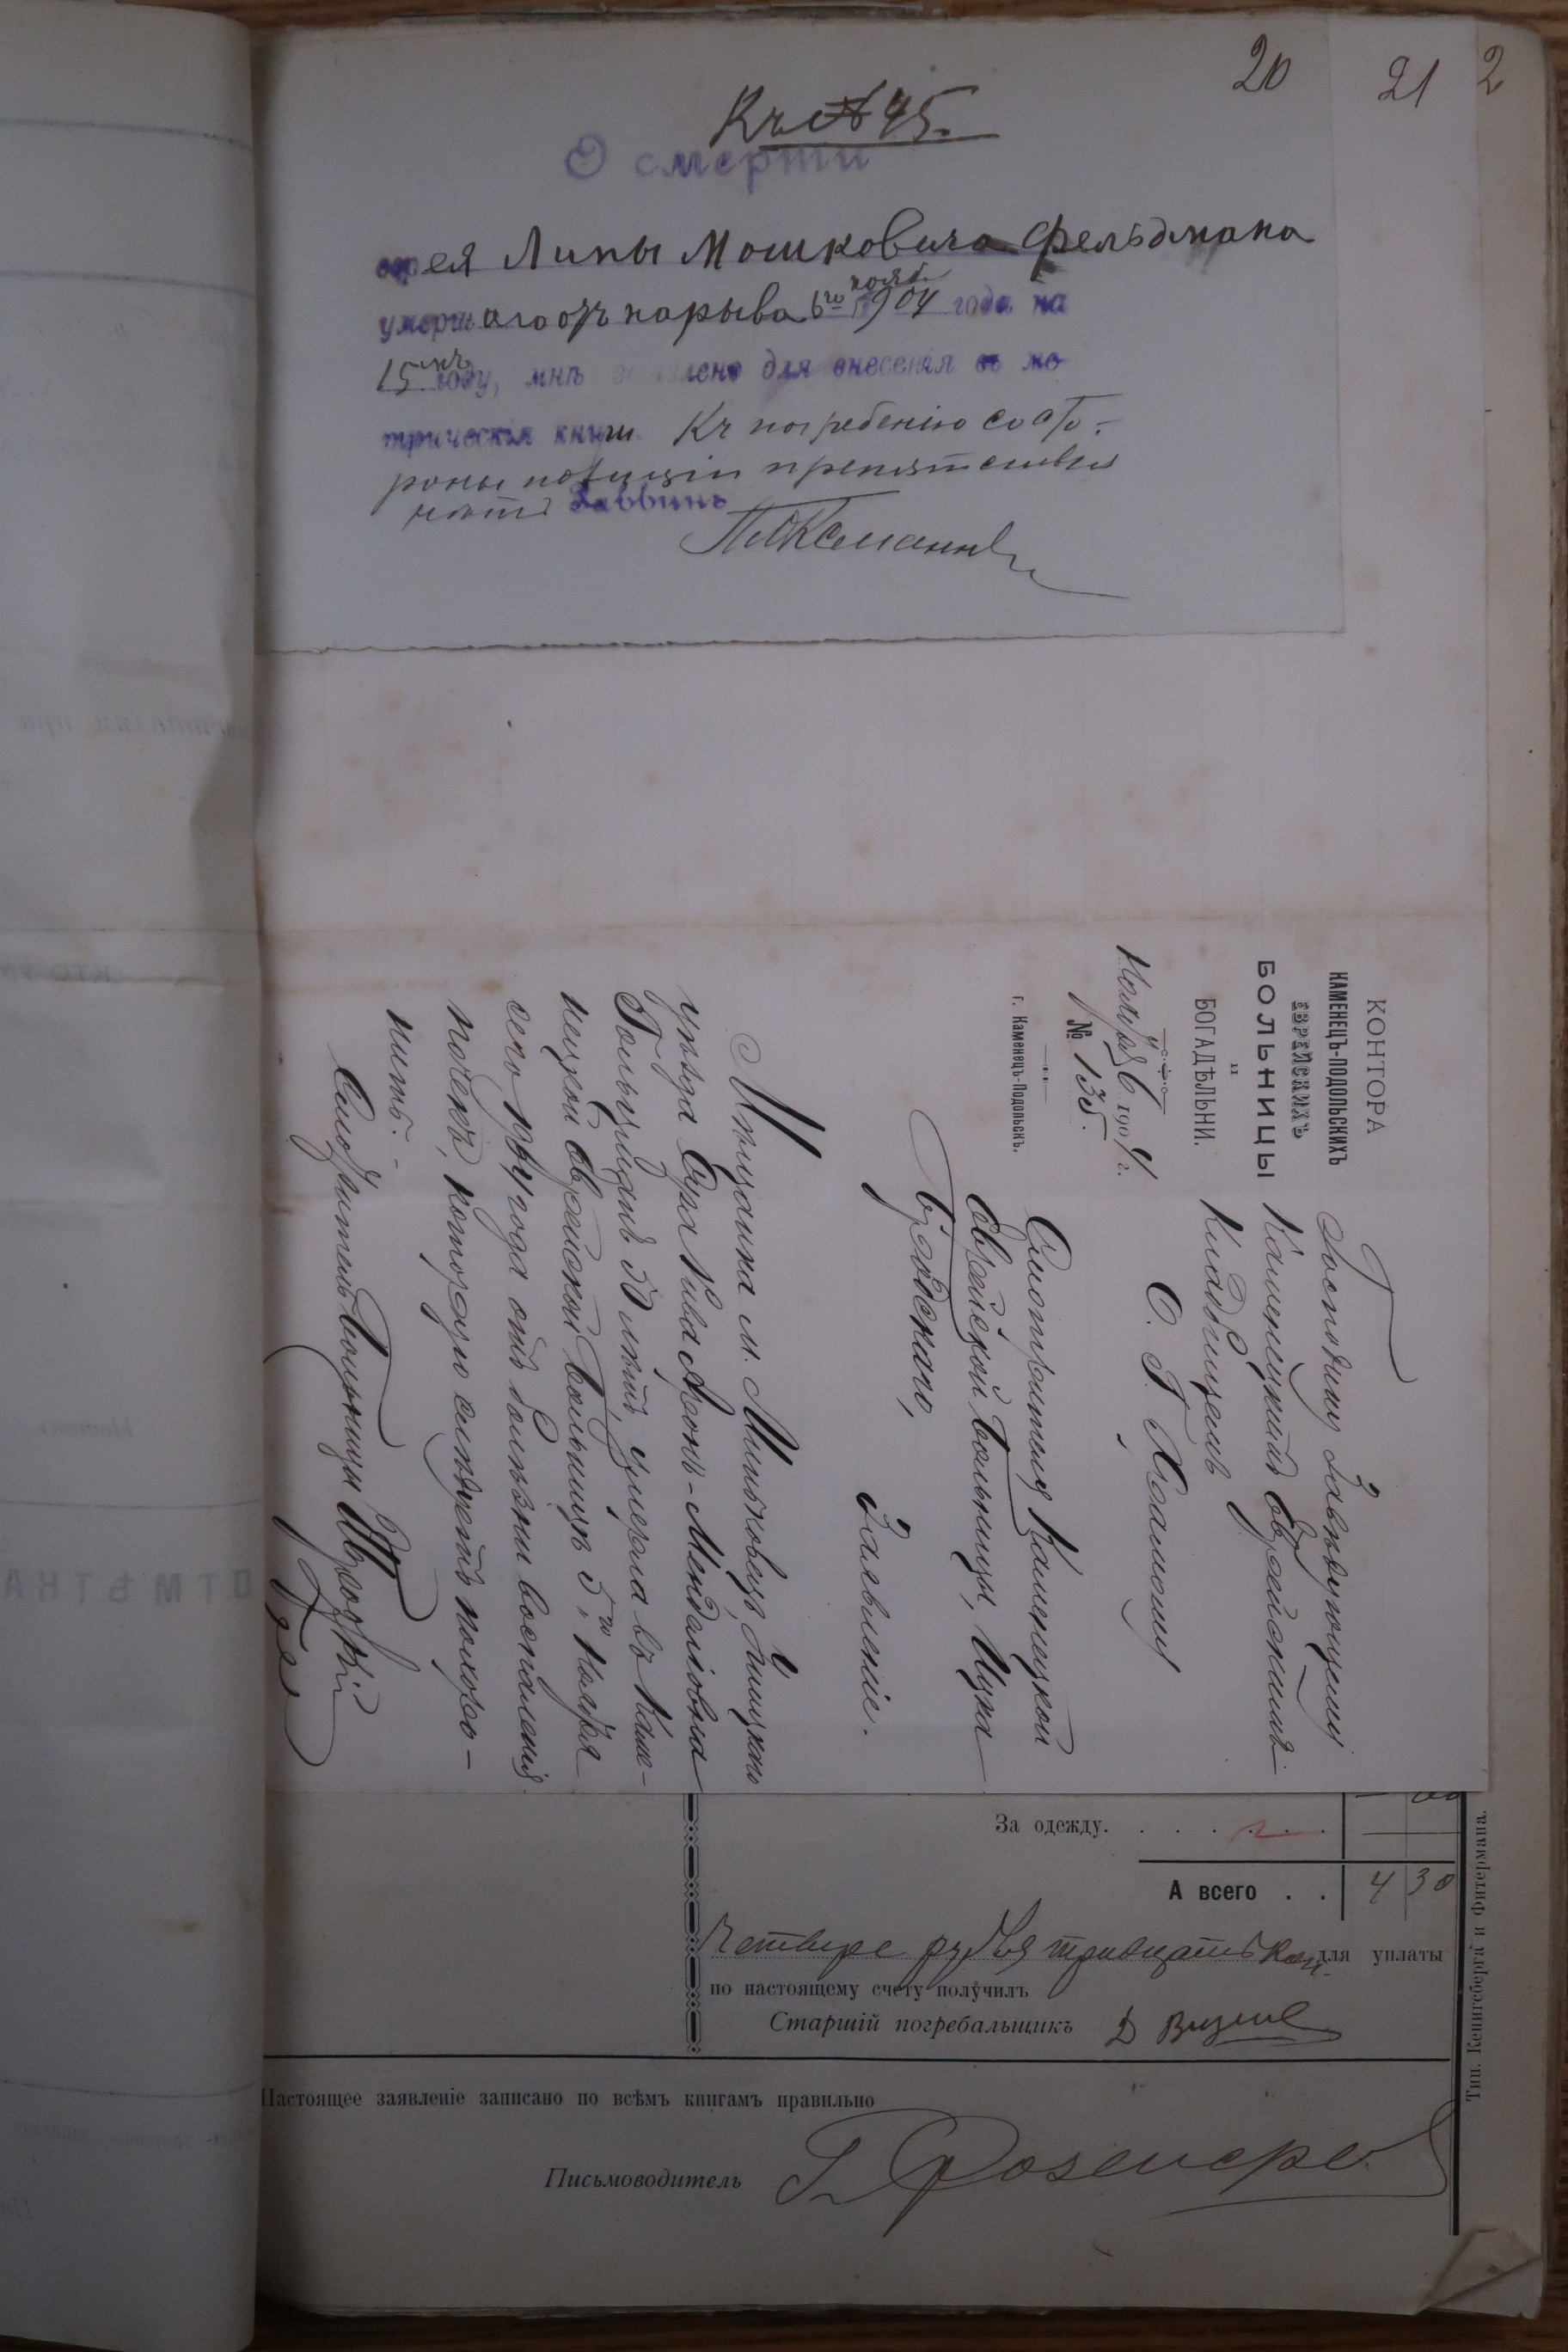 20
21
2
Къ № 45.
О смерти
еврея Липы Мошковича Фельдмана
умершаго отъ нарыва 6го нояб. 1904 года на
15 мъ году, мнѣ заявлено для внесенія въ ме
трическія книги. Къ погребенію со сто-
роны полиціи препятствія
нѣтъ Раввинъ
КОНТОРА
КАМЕНЕЦЪ-ПОДОЛЬСКИХЪ
ЕВРЕЙСКИХЪ
БОЛЬНИЦЫ
и
БОГАДѢЛЬНИ.
Ноября 6 1904 г.
№ 135.
г. Каменецъ-Подольскъ.
Господину Завѣдующему
Каменецкимъ Еврейскимъ
Кладбищемъ
О. Г. Клейману
Смотрителя Каменецкой
Еврейской Больницы, Ицка
Бродскаго,
Заявленіе.
Мѣщанка м. Миньковецъ, Ушицкаго
уѣзда Сура Хива Аронъ-Менделіовна
Гольцманъ 50 лѣтъ, умерла въ Каме-
нецкой Еврейской Больницѣ 5го Ноября
сего 1904 года отъ болѣзни воспаленія
почекъ, которую слѣдуетъ похоро-
нить.
Смотритель Больницы И Бродскій
За одежду. . . . . . .
А всего . . 4 30
Четыре рубля тридцать коп. для уплаты
по настоящему счету получилъ
Старшій погребальщикъ Д
Настоящее заявленіе записано по всѣмъ книгамъ правильно
Письмоводитель Г Розенберг
Тип. Кенигсберга и Фитермана.
ОТМѢТКА